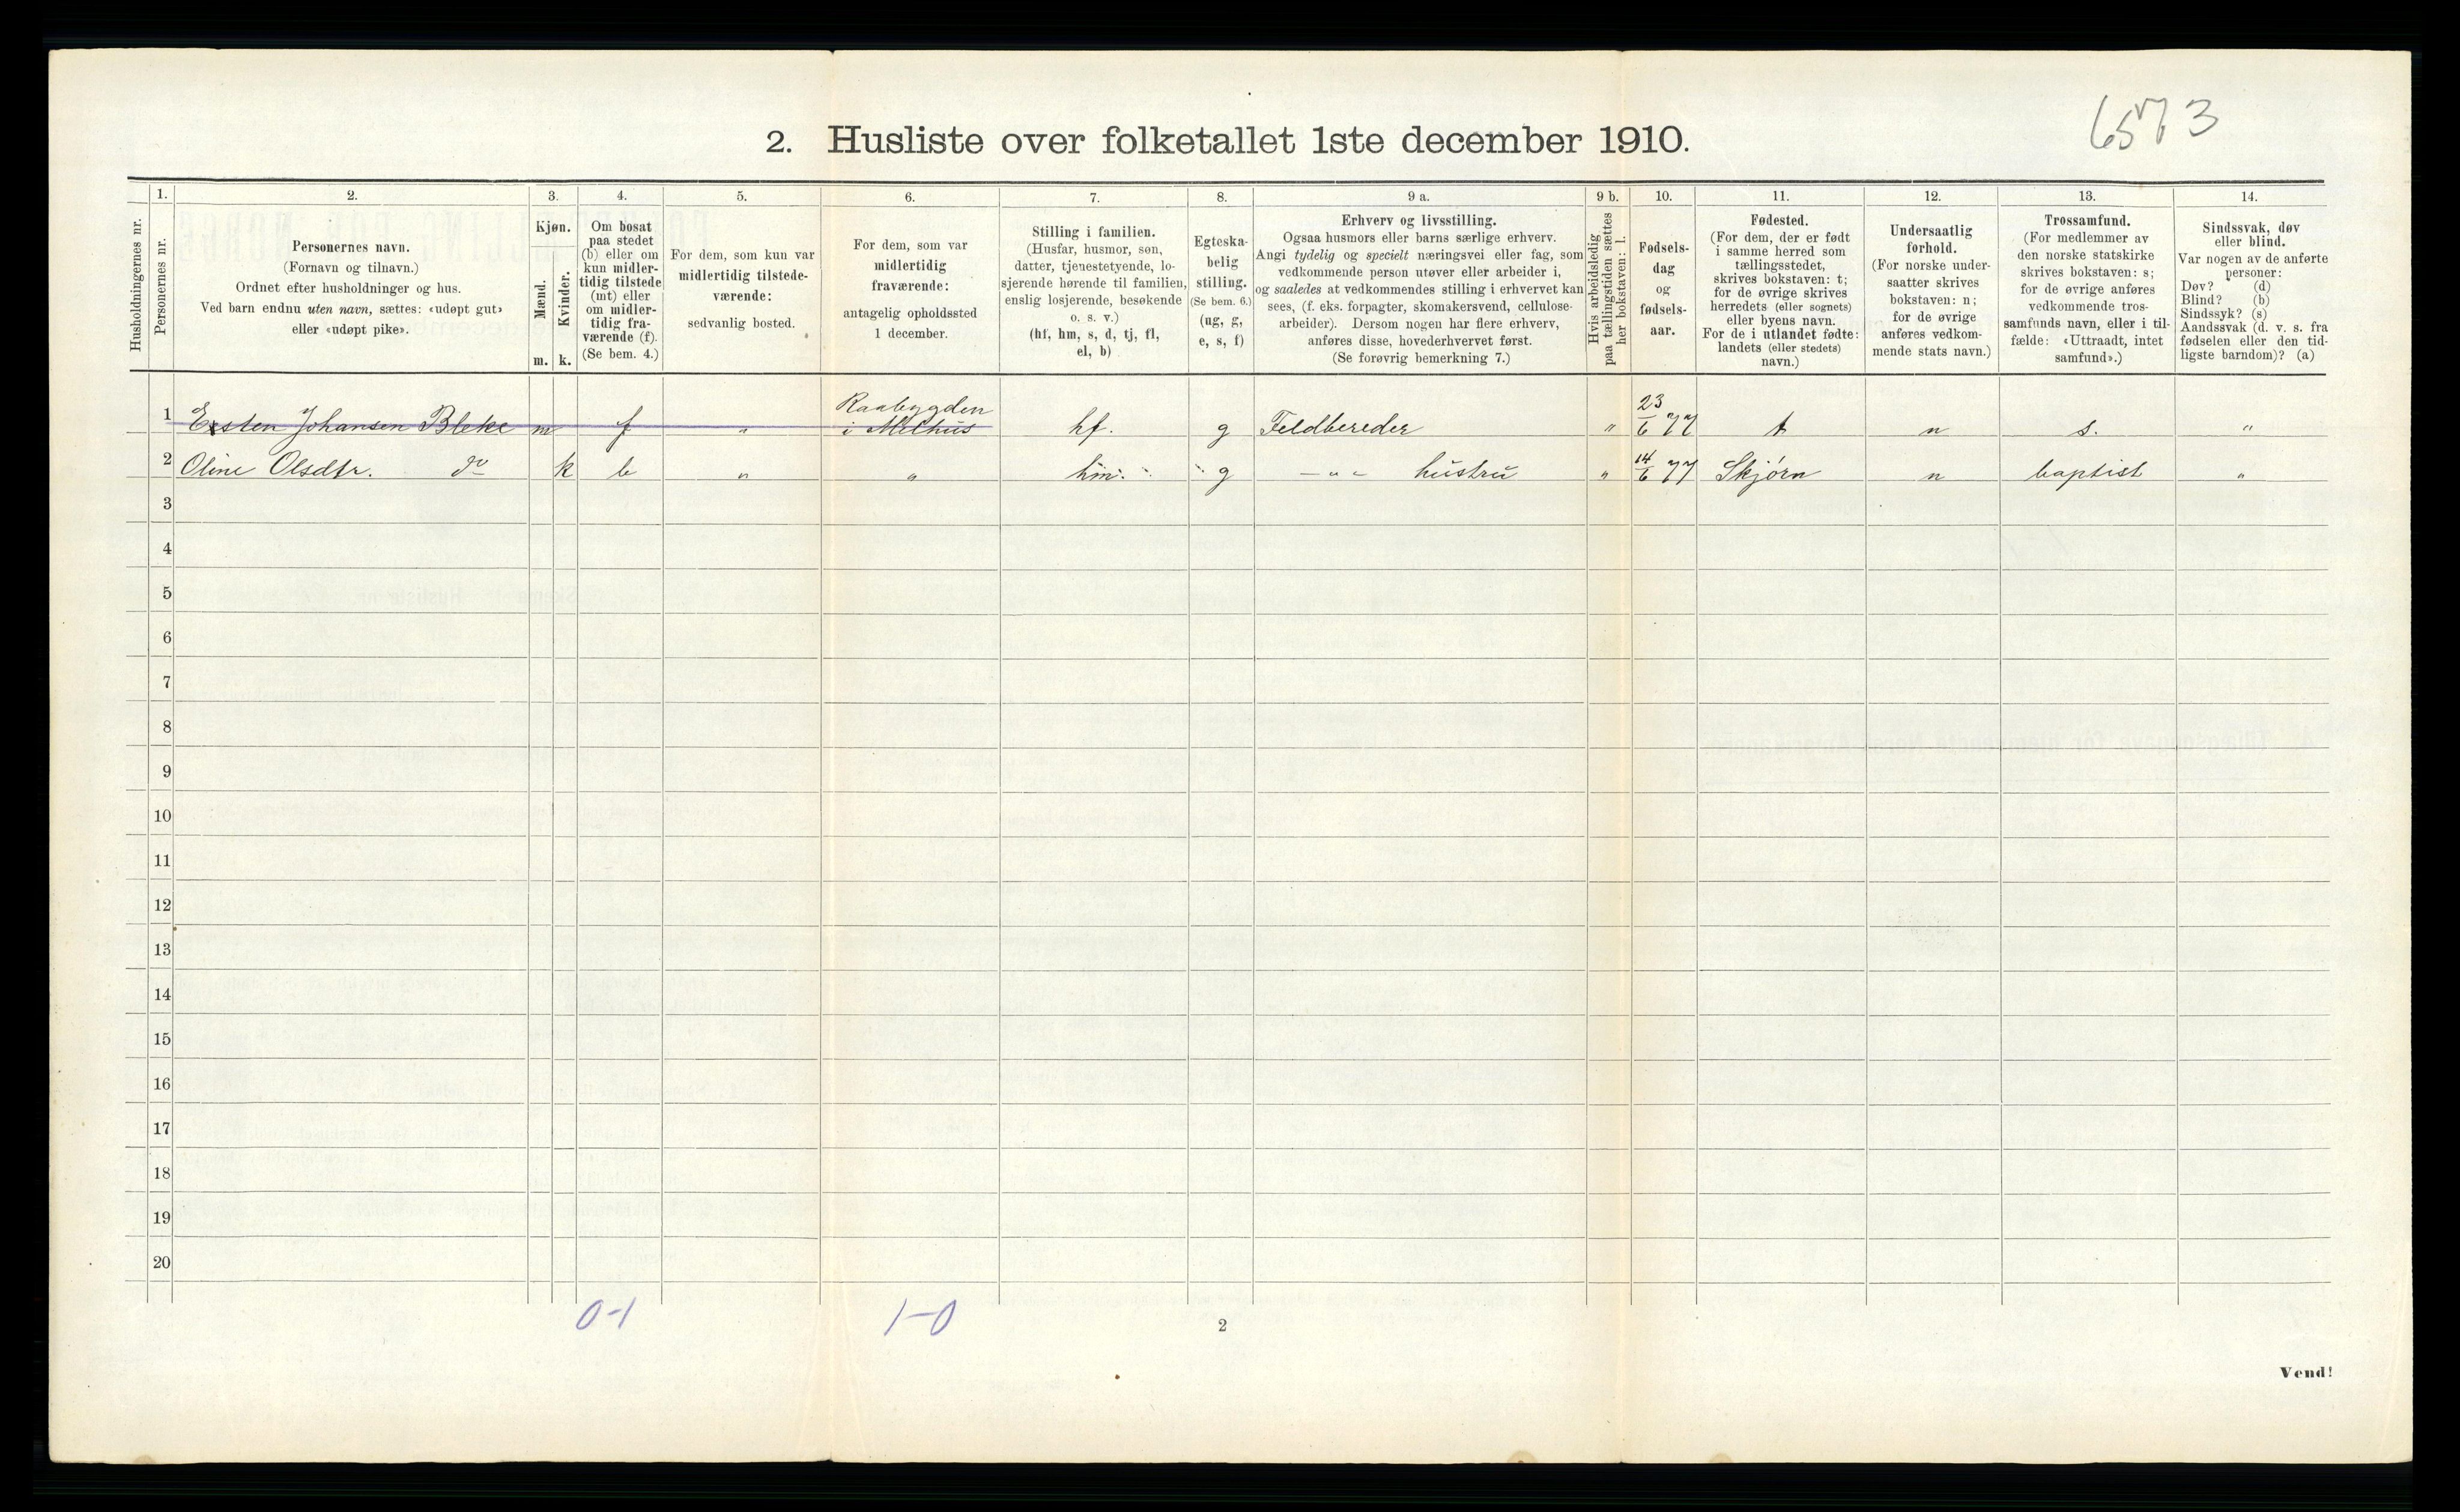 6573
2. Husliste over folketallet 1ste december 1910.
Husholdningernes nr.
1.
Personernes nr.
2.
Personernes navn.
(Fornavn og tilnavn.)
Ordnet efter husholdninger og hus.
Ved barn endnu uten navn, sættes: «udøpt gut»
eller «udøpt pike».
3.
Kjøn.
Mænd.
m.
Kvinder.
k.
4.
Om bosat
paa stedet
(b) eller om
kun midler-
tidig tilstede
(mt) eller
om midler-
tidig fra-
værende (f).
(Se bem. 4.)
5.
For dem, som kun var
midlertidig tilstede-
værende:
sedvanlig bosted.
6.
For dem, som var
midlertidig
fraværende:
antagelig opholdssted
1 december.
7.
Stilling i familien.
(Husfar, husmor, søn,
datter, tjenestetyende, lo-
sjerende hørende til familien,
enslig losjerende, besøkende
o. s. v.)
(hf, hm, s, d, tj, fl,
el, b)
8.
Egteska-
belig
stilling.
(Se bem. 6.)
(ug, g,
e, s, f)
9 a.
Erhverv og livsstilling.
Ogsaa husmors eller barns særlige erhverv.
Angi tydelig og specielt næringsvei eller fag, som
vedkommende person utøver eller arbeider i,
og saaledes at vedkommendes stilling i erhvervet kan
sees, (f. eks. forpagter, skomakersvend, cellulose-
arbeider). Dersom nogen har flere erhverv,
anføres disse, hovederhvervet først.
(Se forøvrig bemerkning 7.)
9 b.
Hvis arbeidsledig
paa tællingstiden sættes
her bokstaven: l.
10.
Fødsels-
dag
og
fødsels-
aar.
11.
Fødested.
(For dem, der er født
i samme herred som
tællingsstedet,
skrives bokstaven: t;
for de øvrige skrives
herredets (eller sognets)
eller byens navn.
For de i utlandet fødte:
landets (eller stedets)
navn.)
12.
Undersaatlig
forhold.
(For norske under-
saatter skrives
bokstaven: n;
for de øvrige
anføres vedkom-
mende stats navn.)
13.
Trossamfund.
(For medlemmer av
den norske statskirke
skrives bokstaven: s;
for de øvrige anføres
vedkommende tros-
samfunds navn, eller i til-
fælde: «Uttraadt, intet
samfund».)
14.
Sindssvak, døv
eller blind.
Var nogen av de anførte
personer:
Døv? (d)
Blind? (b)
Sindssyk? (s)
Aandssvak (d. v. s. fra
fødselen eller den tid-
ligste barndom)? (a)
1 Esten Johansen Bleke m f " Raabygden i Melhus hf. g Feldbereder " 23/6 77 t n s. "
2 Oline Olsdtr. do k b " " hm. g — " — hustru " 14/6 77 Skjørn n baptist "
3
4
5
6
7
8
9
10
11
12
13
14
15
16
17
18
19
20
0-1
1-0
2
Vend!